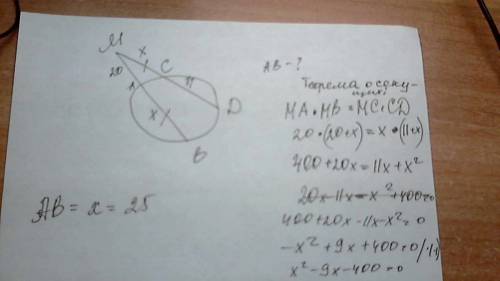 M
x
20
C
11
A
x
D
B
AB = x = 25
AB - ?
Теорема о секу-
щих:
MA • MB = MC • CD
20 • (20+x) = x • (11+x)
400 + 20x = 11x + x²
20x - 11x = x² + 400 = 0
400 + 20x - 11x - x² = 0
-x² + 9x + 400 = 0 /·(-1)
x² - 9x - 400 = 0